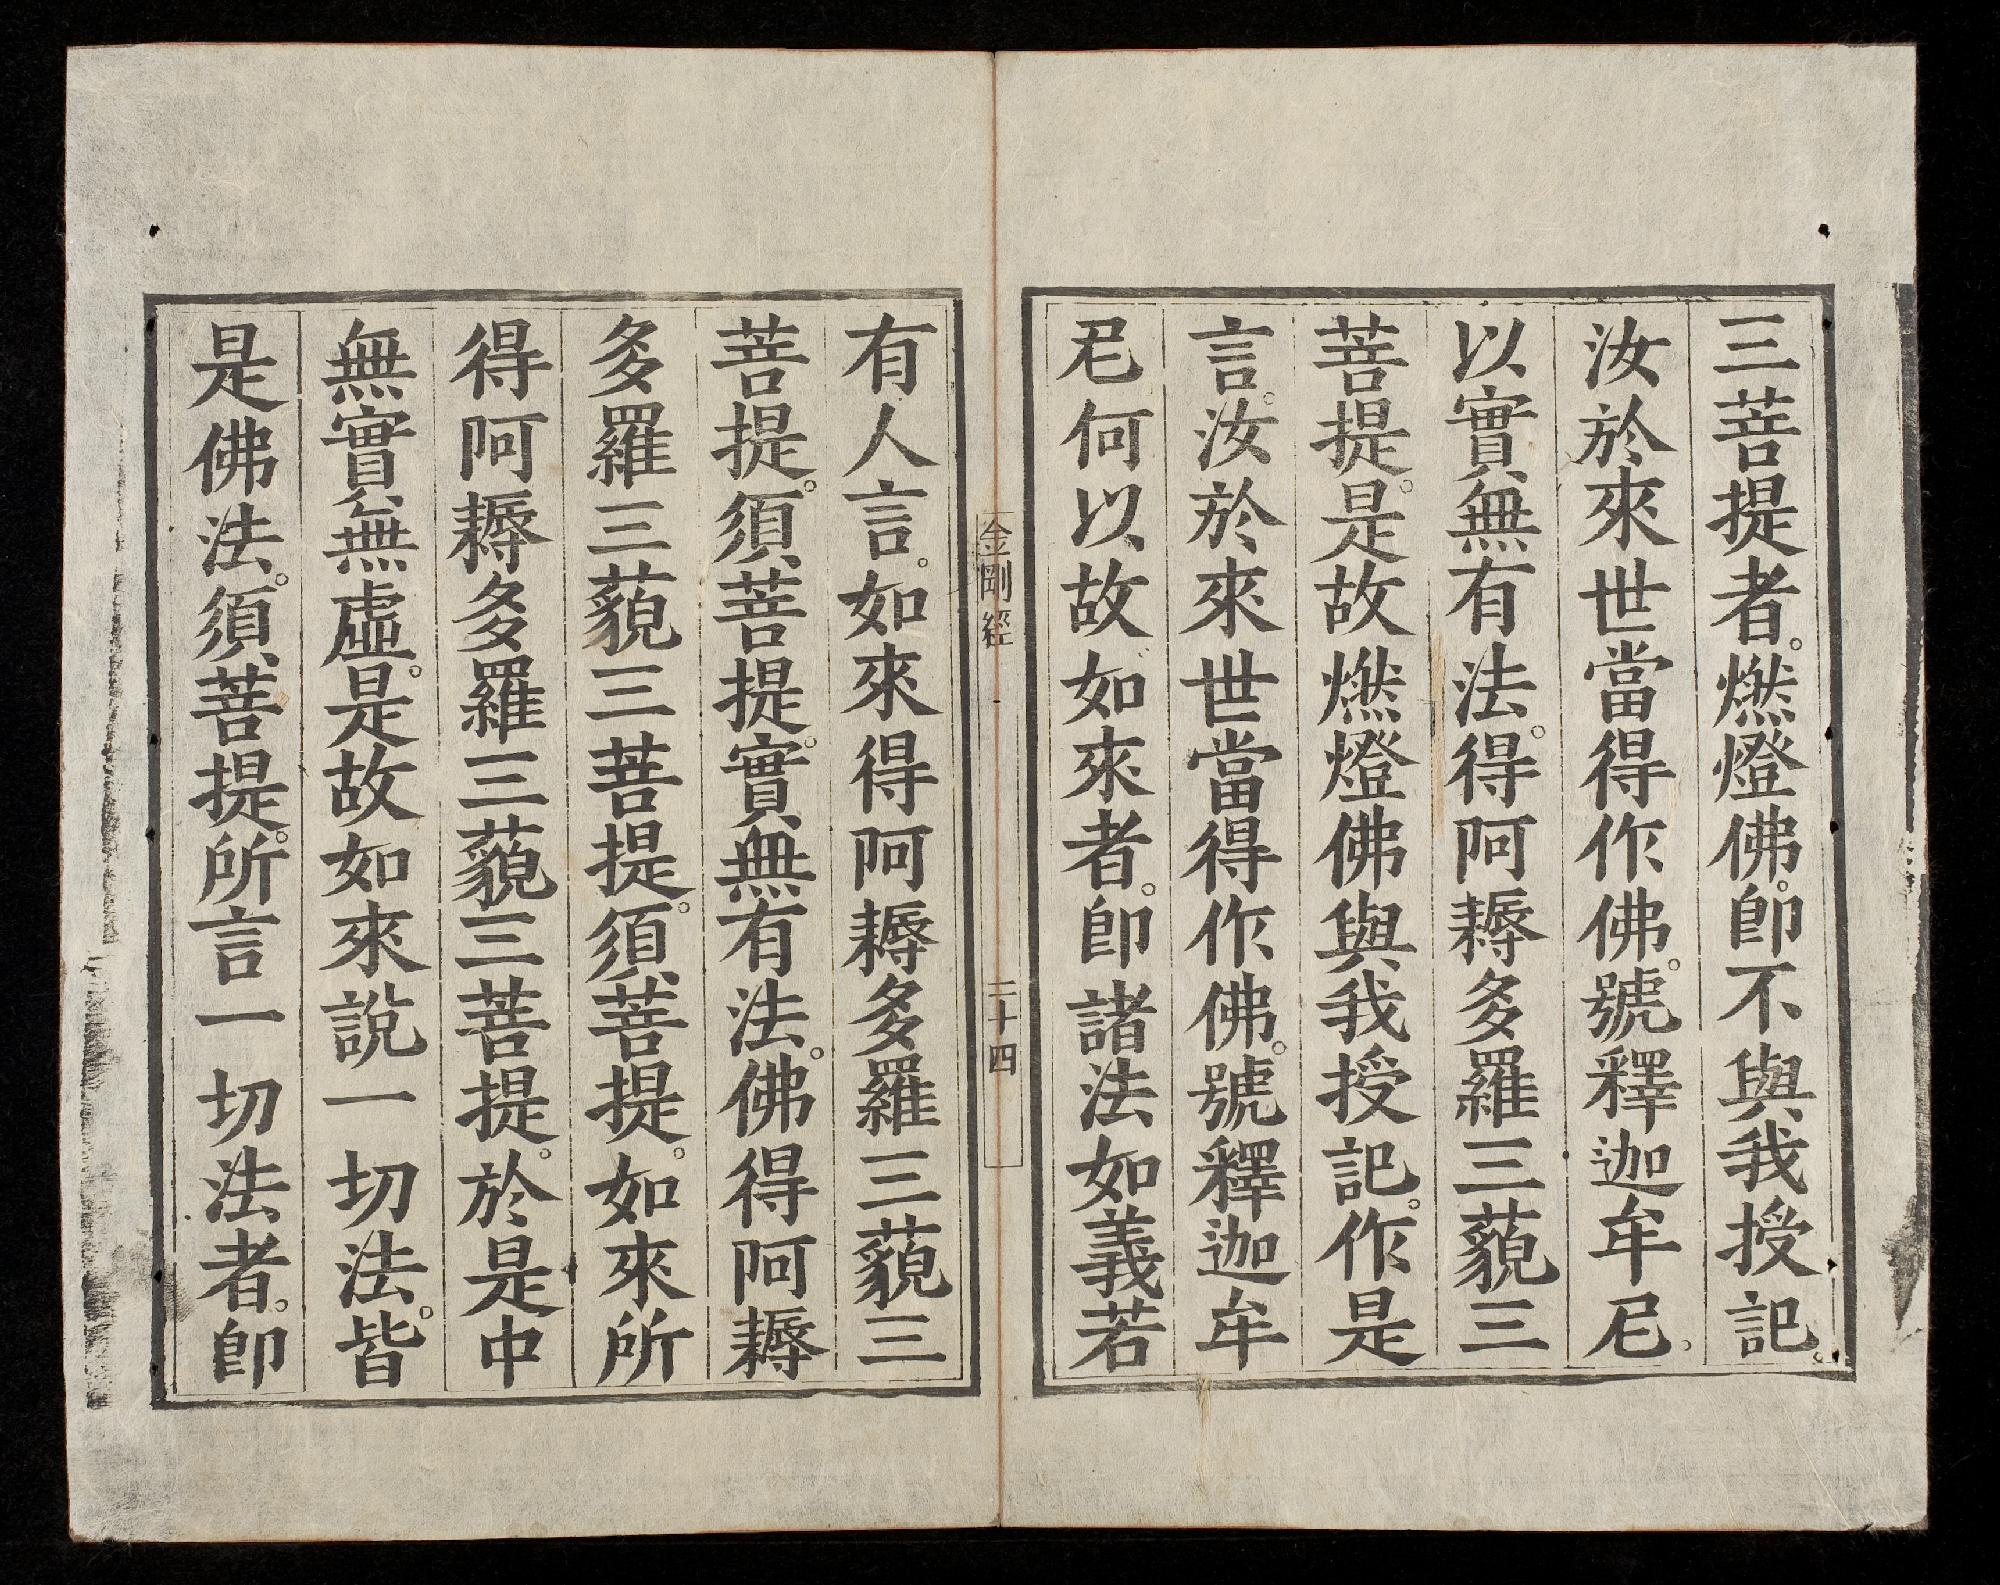 三菩提者。燃燈佛。即不與我授記。
汝於來世當得作佛。號釋迦牟尼。
以實無有法。得阿耨多羅三藐三
菩提。是故燃燈佛與我授記。作是
言。汝於來世當得作佛。號釋迦牟
尼何以故如來者。即諸法如義若
金剛經
二十四
有人言。如來得阿耨多羅三藐三
菩提。須菩提。實無有法。佛得阿耨
多羅三藐三菩提。須菩提。如來所
得阿耨多羅三藐三菩提。於是中
無實無虛。是故如來說一切法。皆
是佛法。須菩提。所言一切法者。即